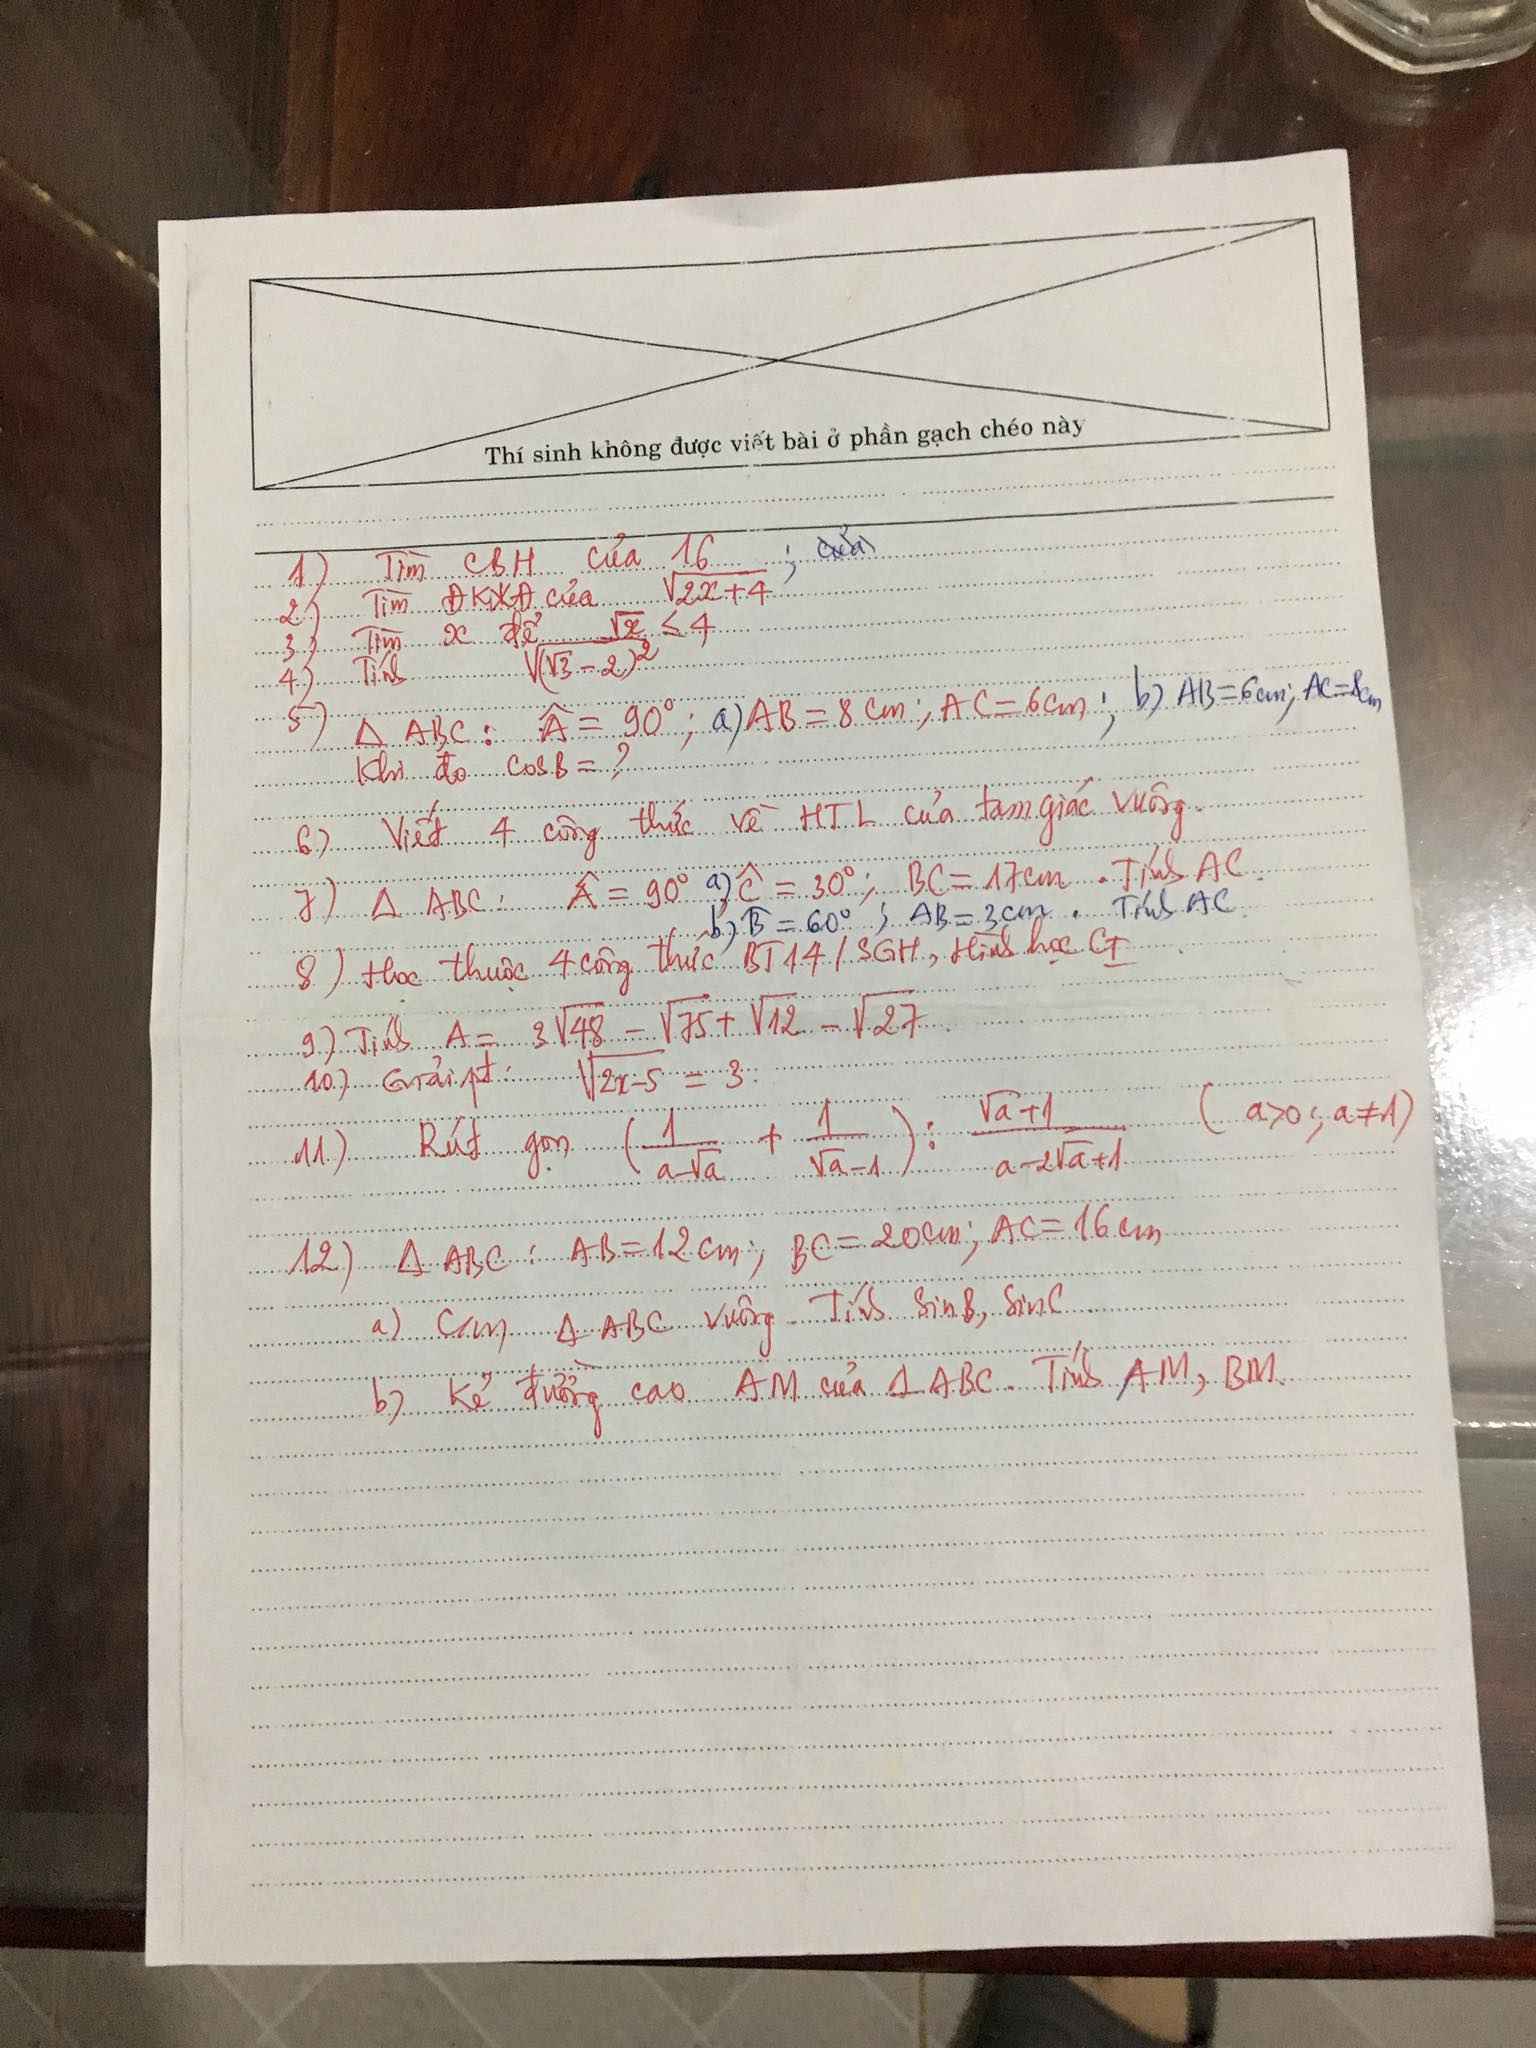 Thí sinh không được viết bài ở phần gạch chéo này
1) Tìm CBH của 16
2) Tìm ĐKXĐ của √(2x+4) ; của
3) Tìm x để √x ≤ 4
4) Tính √((√3-2)²)
5) Δ ABC : Â = 90°; a) AB = 8cm; AC = 6cm; b) AB=6cm; AC=8cm
Khi đo cosB = ?
6) Viết 4 công thức về HTL của tam giác vuông.
7) Δ ABC : Â = 90° a) Ĉ = 30°; BC = 17cm. Tính AC.
b) B̂ = 60°; AB = 3cm. Tính AC
8) Học thuộc 4 công thức BT14/SGH, Hình học CI
9) Tính A = 3√48 - √75 + √12 - √27
10) Giải pt: √(2x-5) = 3.
11) Rút gọn (1/(a-√a) + 1/(√a-1)) : (√a+1)/(a-2√a+1) (a>0; a≠1)
12) Δ ABC : AB=12cm; BC=20cm; AC=16cm
a) Cm Δ ABC vuông. Tính sinB, sinC
b) Kẻ đường cao AM của Δ ABC. Tính AM, BM.